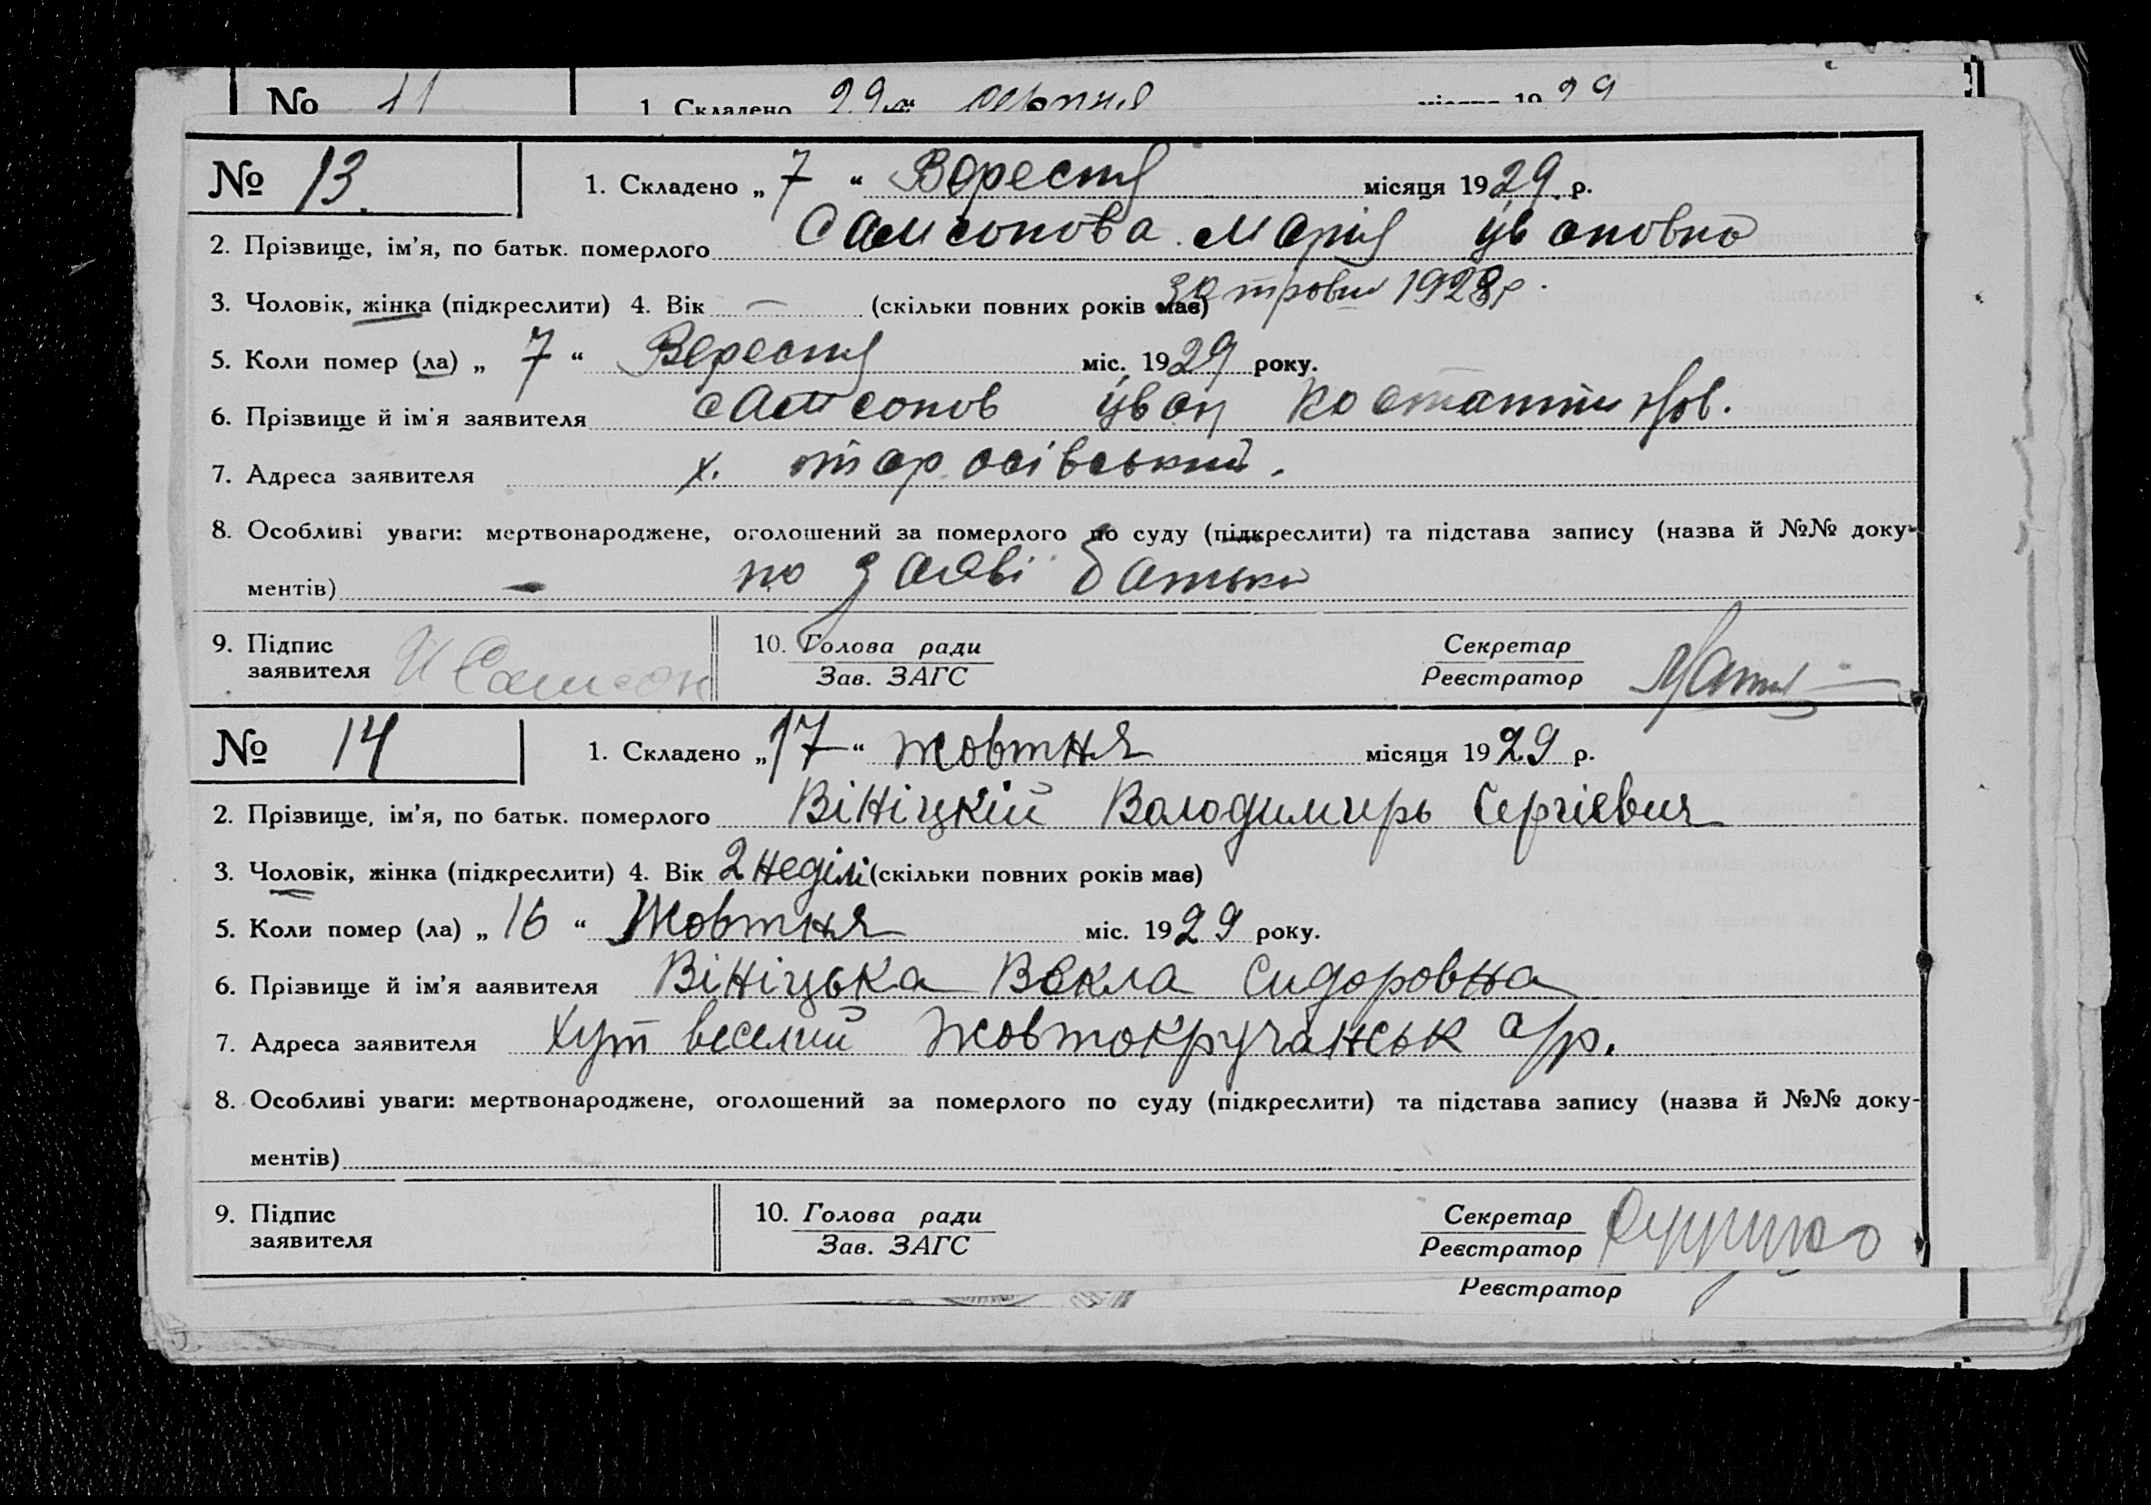 № 11 1. Складено 29 серпня 1929
№ 13. 1. Складено „ 7 “ Вересня місяця 1929 р.
2. Прізвище, ім'я, по батьк. померлого Самсонова Марія Ивановна
3. Чоловік, жінка (підкреслити) 4. Вік — (скільки повних років має) 30 травня 1928 р.
5. Коли помер (ла) „ 7 “ Вересня міс. 1929 року.
6. Прізвище й ім'я заявителя Самсонов Иван Костантинов.
7. Адреса заявителя х. тарасівський.
8. Особливі уваги: мертвонароджене, оголошений за померлого по суду (підкреслити) та підстава запису (назва й №№ доку-
ментів) — по заяві батька
9. Підпис заявителя И Самсон 10. Голова ради Секретар
Зав. ЗАГС Реєстратор
№ 14 1. Складено „17“ жовтня місяця 1929 р.
2. Прізвище, ім'я, по батьк. померлого Вініцкій Володимирь Сергієвич
3. Чоловік, жінка (підкреслити) 4. Вік 2 неділі (скільки повних років має)
5. Коли помер (ла) „ 16 “ Жовтня міс. 1929 року.
6. Прізвище й ім'я ааявителя Вініцька Векла Сидоровна
7. Адреса заявителя Хут веселий Жовтокручанськ с/р.
8. Особливі уваги: мертвонароджене, оголошений за померлого по суду (підкреслити) та підстава запису (назва й №№ доку-
ментів)
9. Підпис заявителя 10. Голова ради Секретар
Зав. ЗАГС Реєстратор
Реєстратор